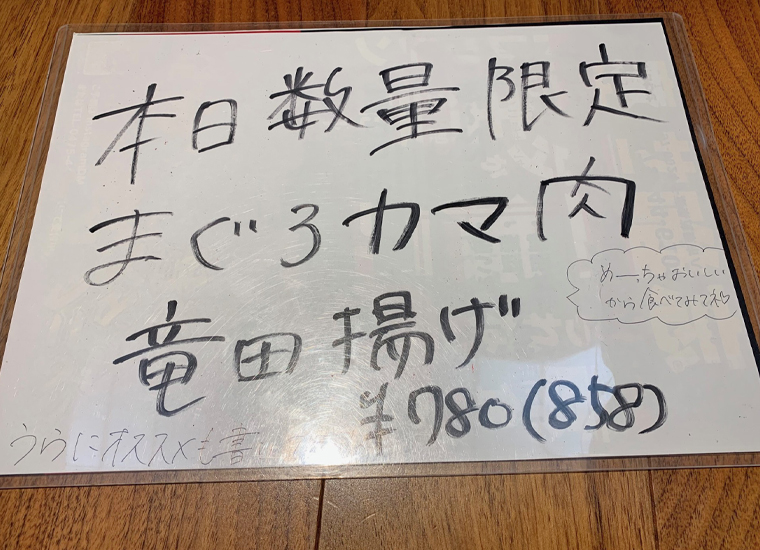 本日数量限定
まぐろカマ肉
めーっちゃおいしい
から食べてみてネ
竜田揚げ
¥780(858)
うらにオススメも書